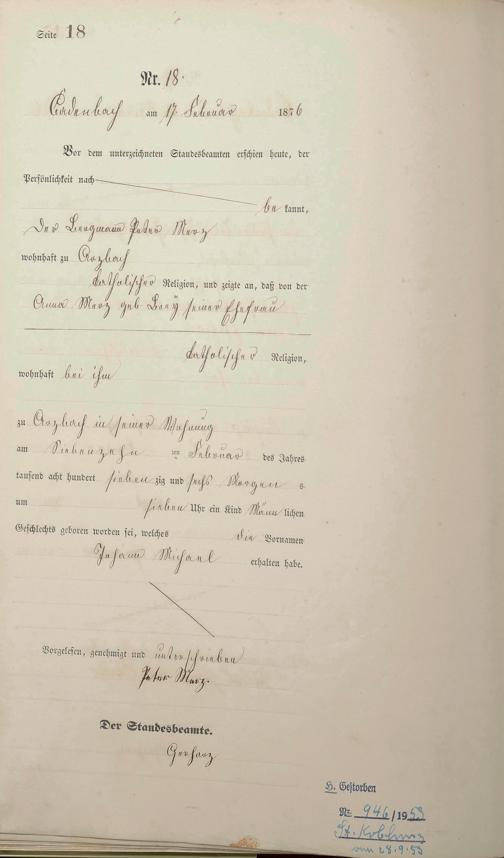 Seite 18
Nr. 18.
Cadenbach am 17 Februar 1876
Vor dem unterzeichneten Standesbeamten erschien heute, der
Persönlichkeit nach
be kannt,
Der Bergmann Peter Merz
wohnhaft zu Arzbach
katholischer Religion, und zeigte an, daß von der
Anna Merz geb seiner Ehefrau
katholischer Religion,
wohnhaft bei ihm
zu Arzbach in seiner Wohnung
am Siebenzehn ten Februar des Jahres
tausend acht hundert sieben zig und sechs Morgen s
um sieben Uhr ein Kind Männ lichen
Geschlechts geboren worden sei, welches die Vornamen
Johann Michael erhalten habe.
Vorgelesen, genehmigt und unterschrieben
Peter Merz.
Der Standesbeamte.
Gerharz
H. Gestorben
Nr. 946/1953
St. Koblenz
vom 28.9.53